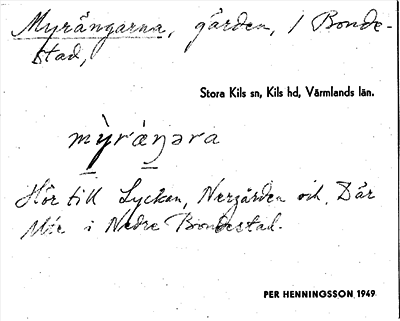 Myrängarna, gärden, i Bonde-
stad,
Stora Kils sn, Kils hd, Värmlands län.
mỳræ̀ŋəra
Hör till Lyckan, Nergården och Där
Nere i Nedre Bondestad.
PER HENNINGSSON 1949